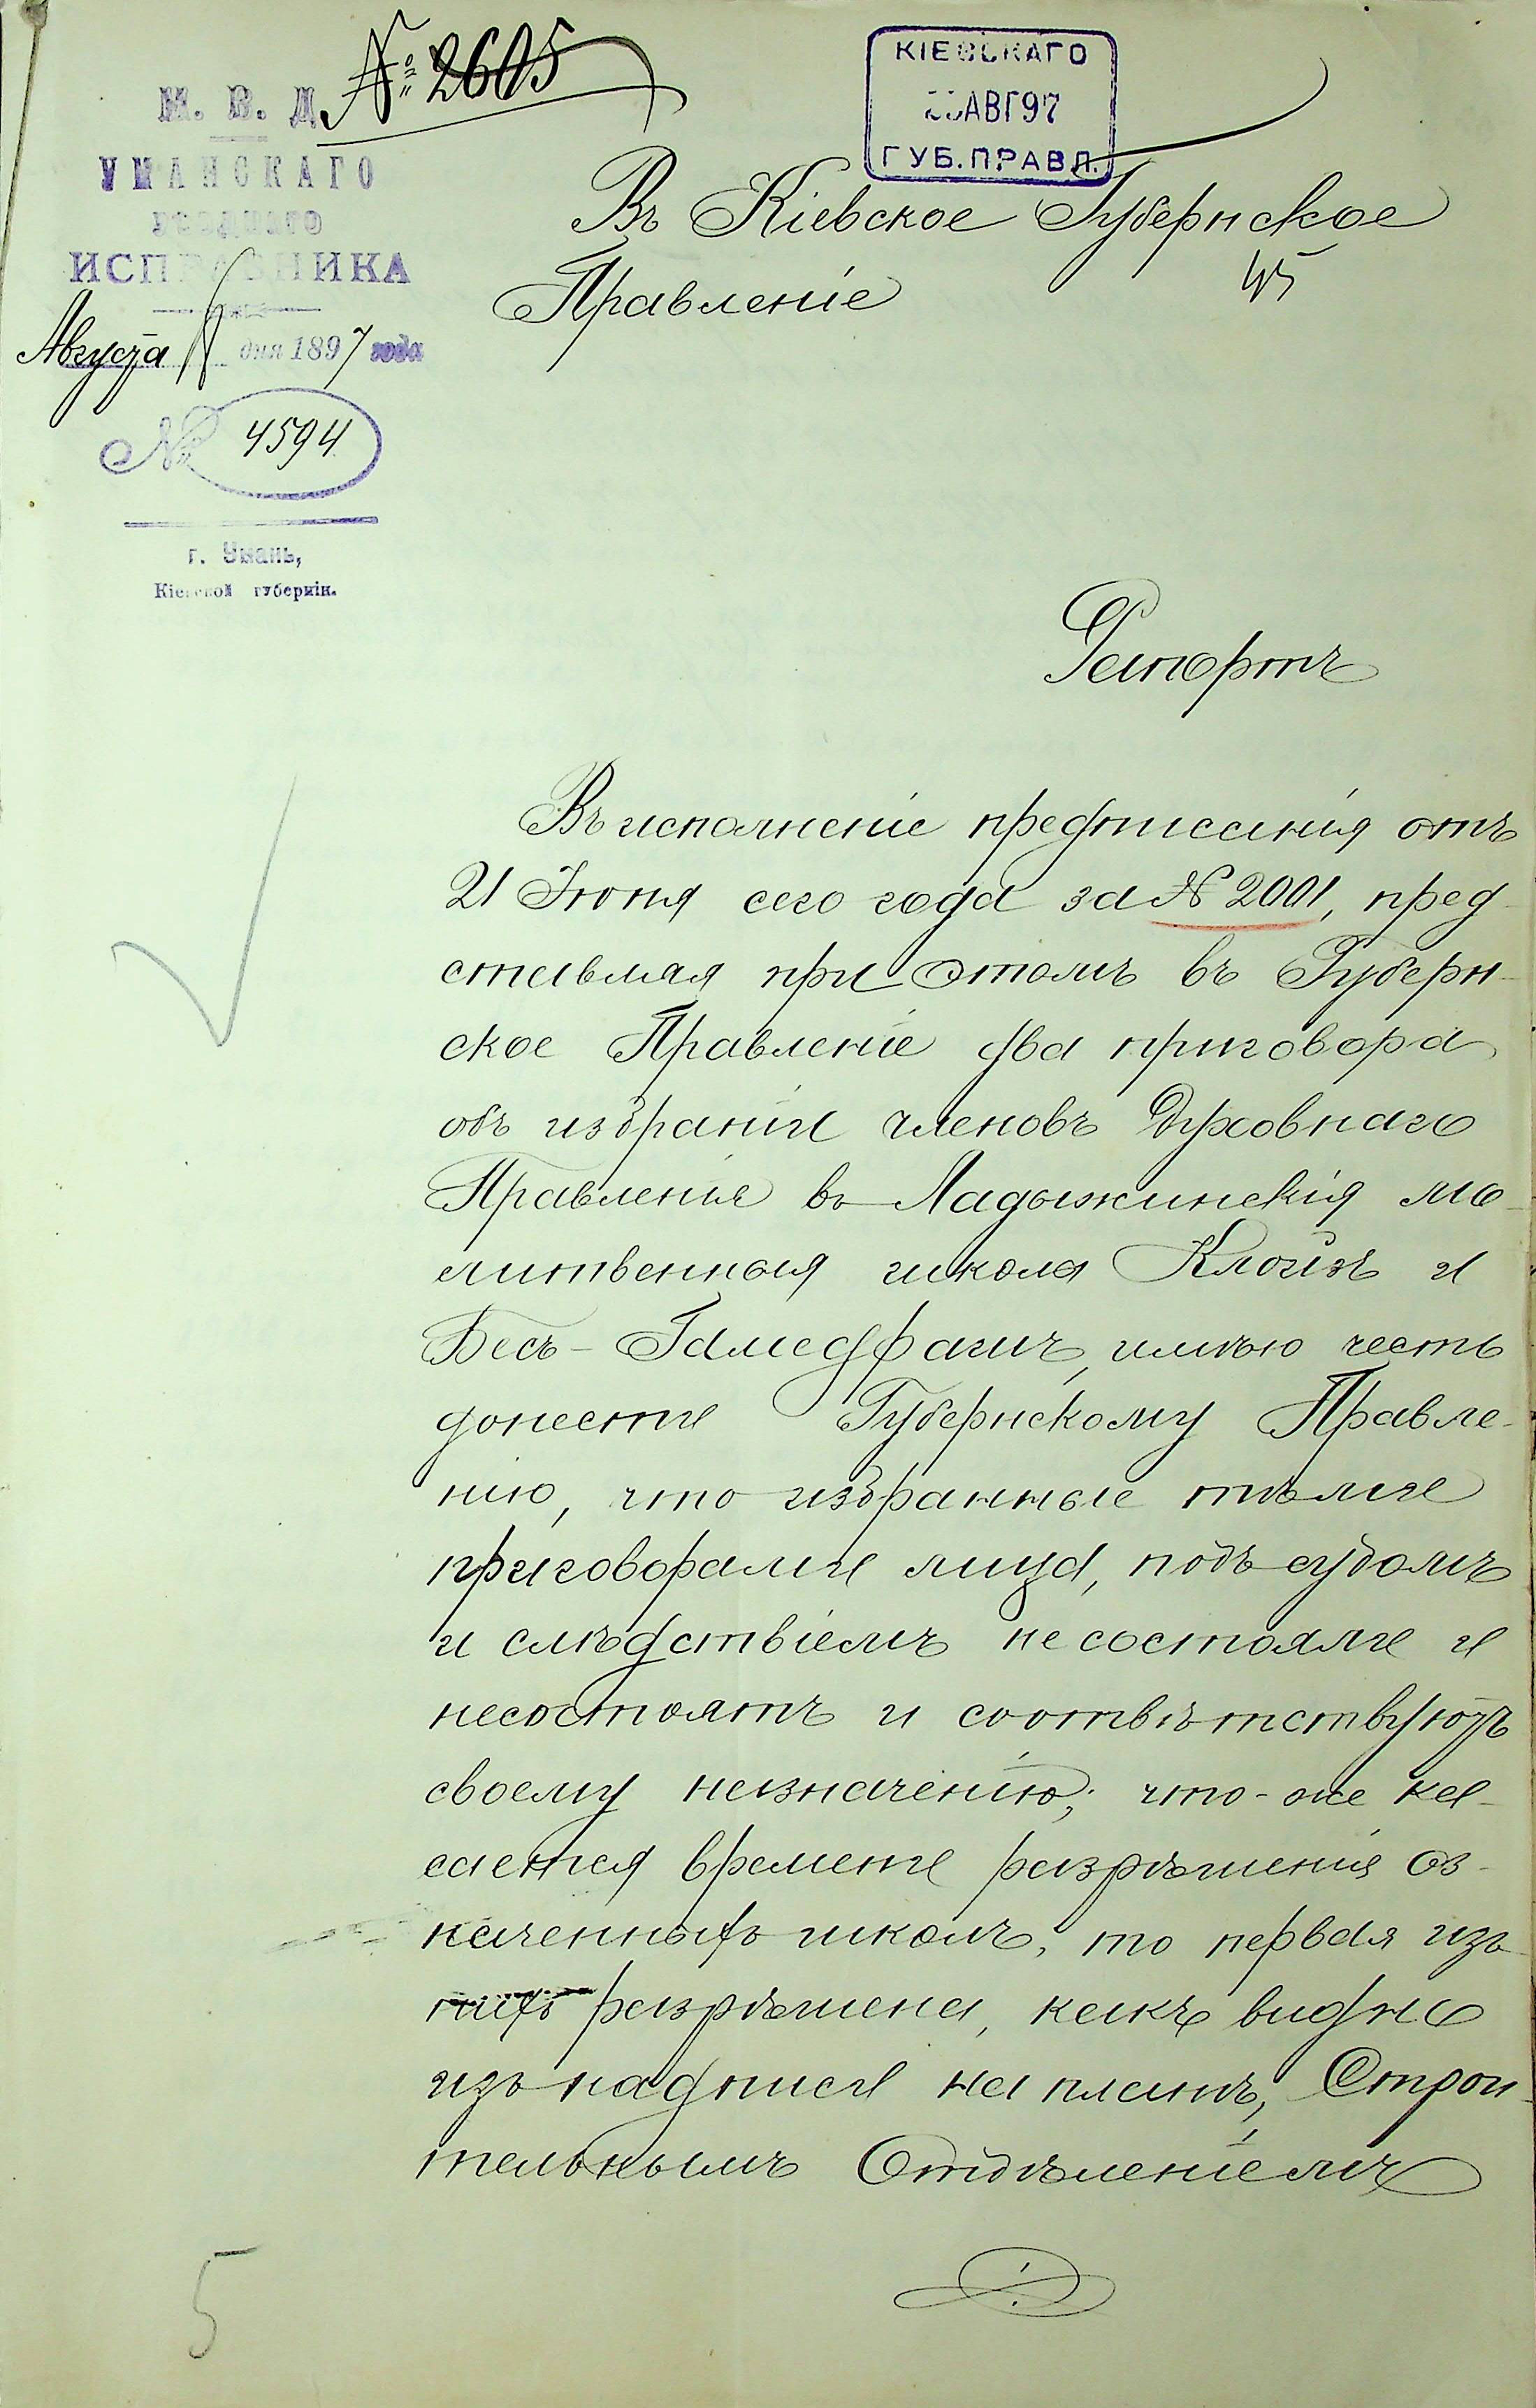 № 2605
КІЕВСКАГО
АВГ97
ГУБ.ПРАВЛ.
М. В. Д.
УМАНСКАГО
УѢЗДНАГО
ИСПРАВНИКА
Августа дня 1897 года
№ 4594
г. Умань,
Кіевской губерніи.
Въ Кіевское Губернское
45
Правленіе
Рапортъ
Въ исполненіе предписанія отъ
21 Іюня сего года за № 2001, пред-
ставляя при этомъ въ Губерн-
ское Правленіе два приговора
объ избраніи членовъ Духовнаго
Правленія въ Ладыжинскія мо-
литвенныя школы Клойзъ и
Бесъ-Гамедрашъ, имѣю честь
донести Губернскому Правле-
нію, что избранные тѣми
приговорами лица, подъ судомъ
и слѣдствіемъ не состояли и
несостоятъ и соотвѣтствуютъ
своему назначенію; что-же ка-
сается времени разрѣшенія оз-
наченныхъ школъ, то первая изъ
нихъ разрѣшена, какъ видно
изъ надписи на планѣ, Строи-
тельнымъ Отдѣленіемъ
5